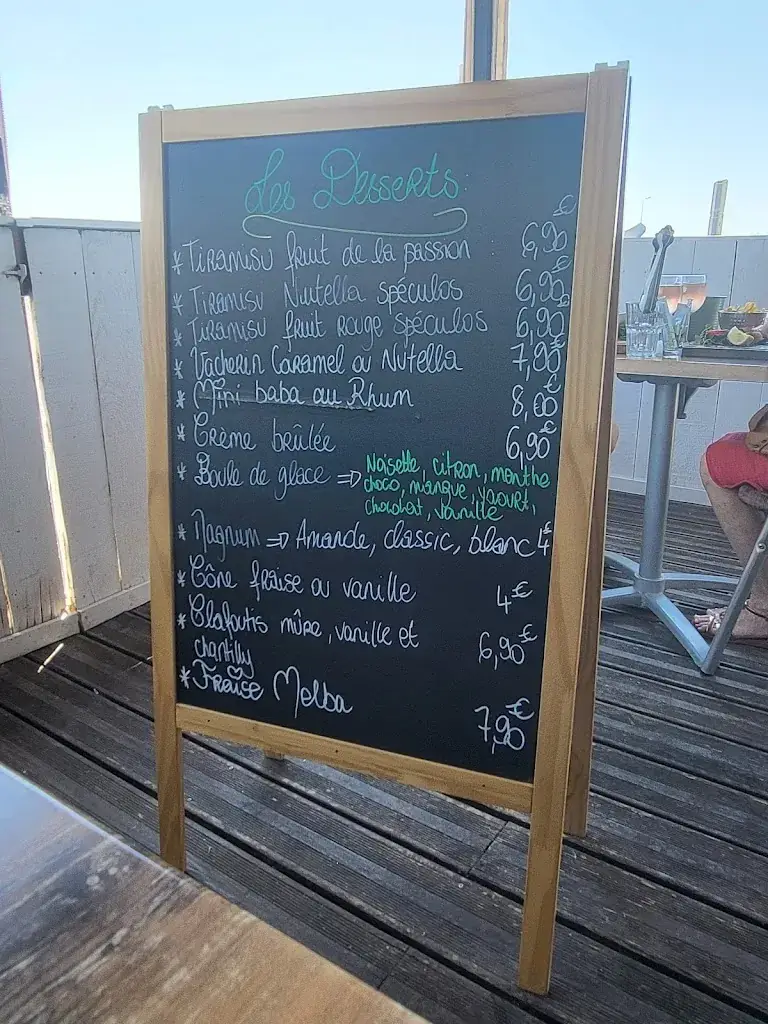 Les Desserts
* Tiramisu fruit de la passion 6,90€
* Tiramisu Nutella spéculos 6,90€
* Tiramisu fruit rouge spéculos 6,90€
* Vacherin Caramel ou Nutella 7,90€
* Mini baba au Rhum 8,00€
* Crème brûlée 6,90€
* Boule de glace ⇒ Noisette, citron, menthe
choco, mangue, yaourt,
chocolat, vanille
* Magnum ⇒ Amande, classic, blanc 4€
* Cône fraise ou vanille 4€
* Clafoutis mûre, vanille et 6,90€
chantilly
* Fraise Melba 7,90€